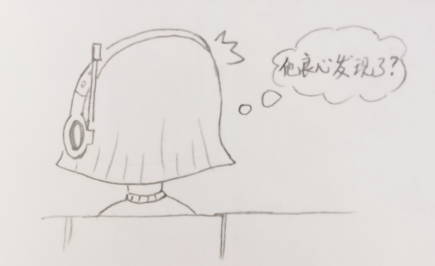 他良心发现了?